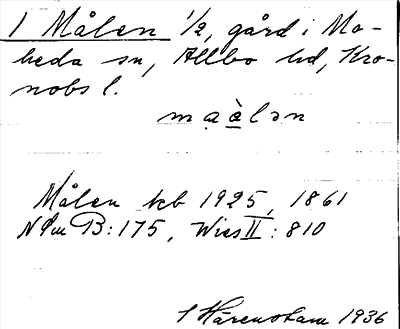 1 Målen 1/2, gård i Mo-
heda sn, Allbo hd, Kro-
nobs l.
mạàlən
Målen kb 1925, 1861
NSm B: 175, Wies II: 810
1936